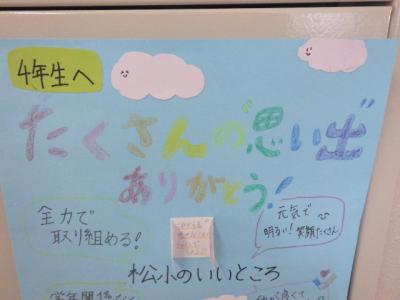 4年生へ
たくさんの思い出
ありがとう!
全力で
取り組める!
元気で
明るい!笑顔たくさん
松小のいいところ
学年関係なく